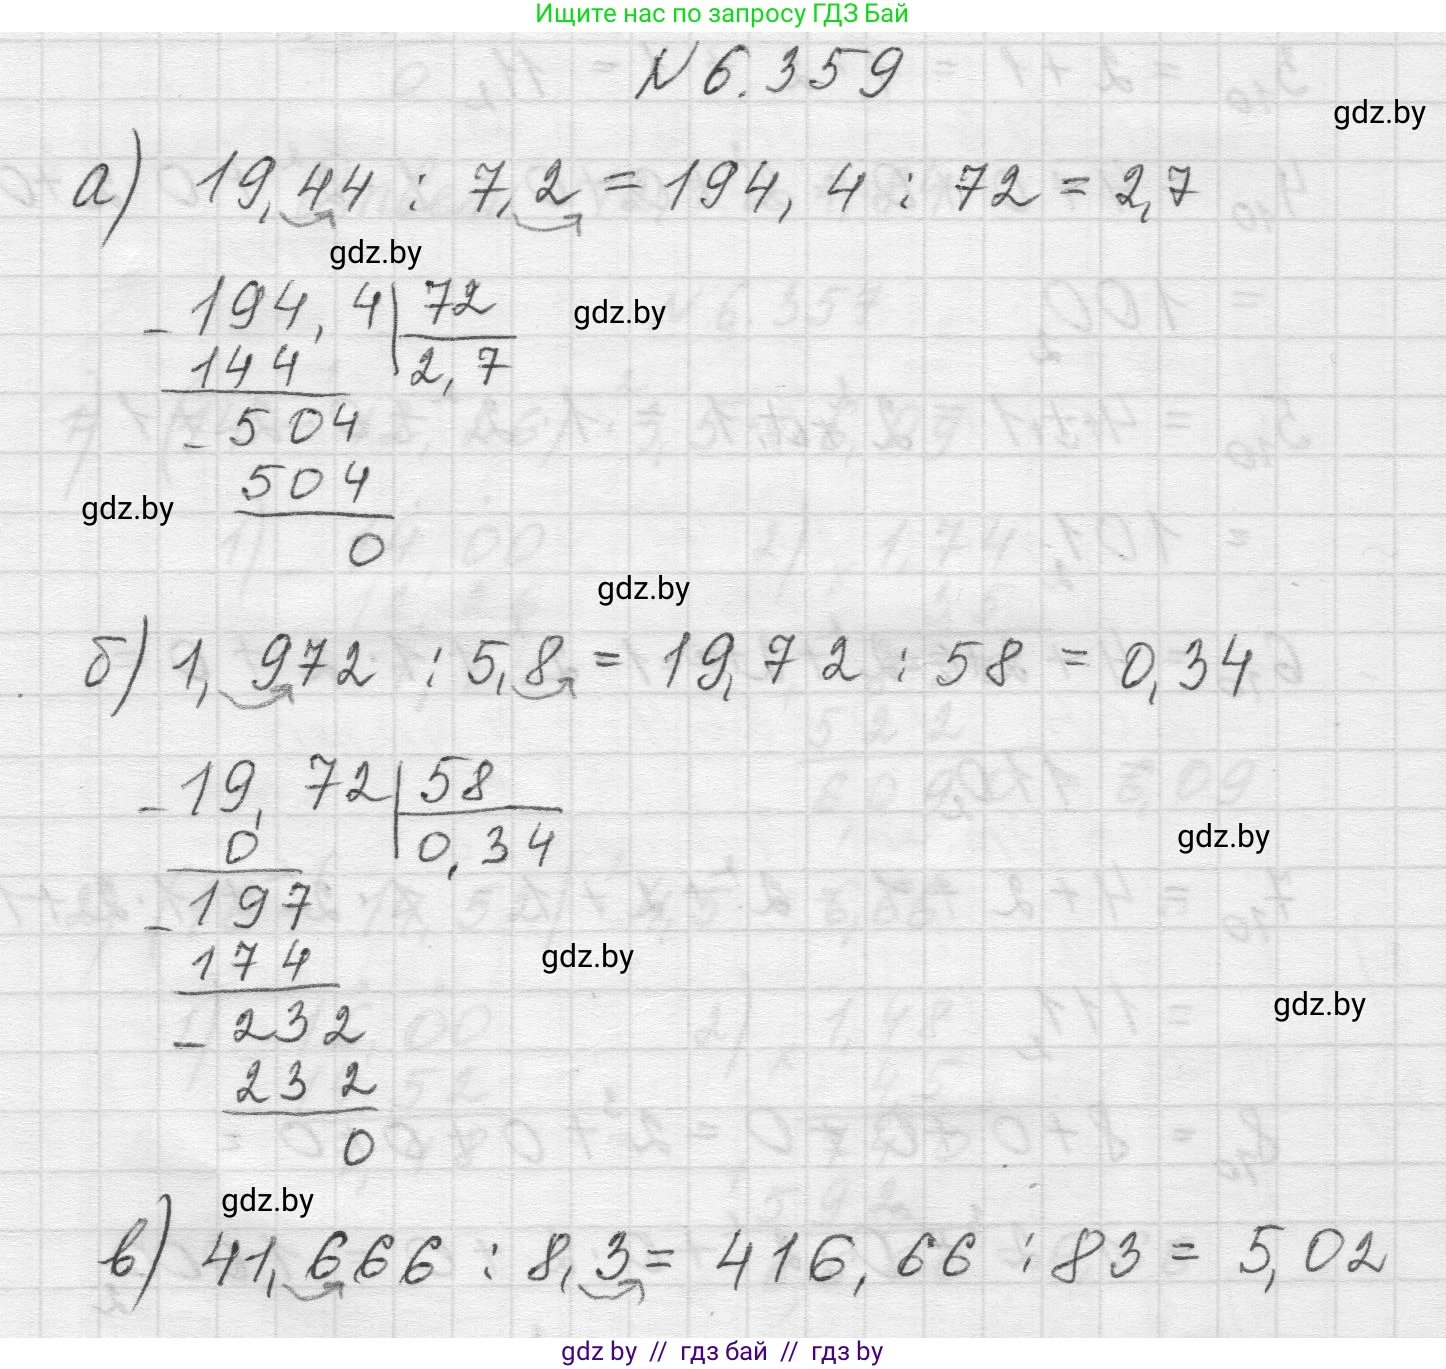 Ищите нас по запросу ГДЗ Бай
№ 6.359
gdz.by
а) 19,44 : 7,2 = 194,4 : 72 = 2,7
gdz.by
194,4 | 72
gdz.by
- 144 | 2,7
- 504
504
gdz.by
0
gdz.by
б) 1,972 : 5,8 = 19,72 : 58 = 0,34
- 19,72 | 58
0 | 0,34
gdz.by
- 197
174
gdz.by
gdz.by
- 232
232
0
gdz.by
в) 41,666 : 8,3 = 416,66 : 83 = 5,02
gdz.by // гдз бай // гдз by